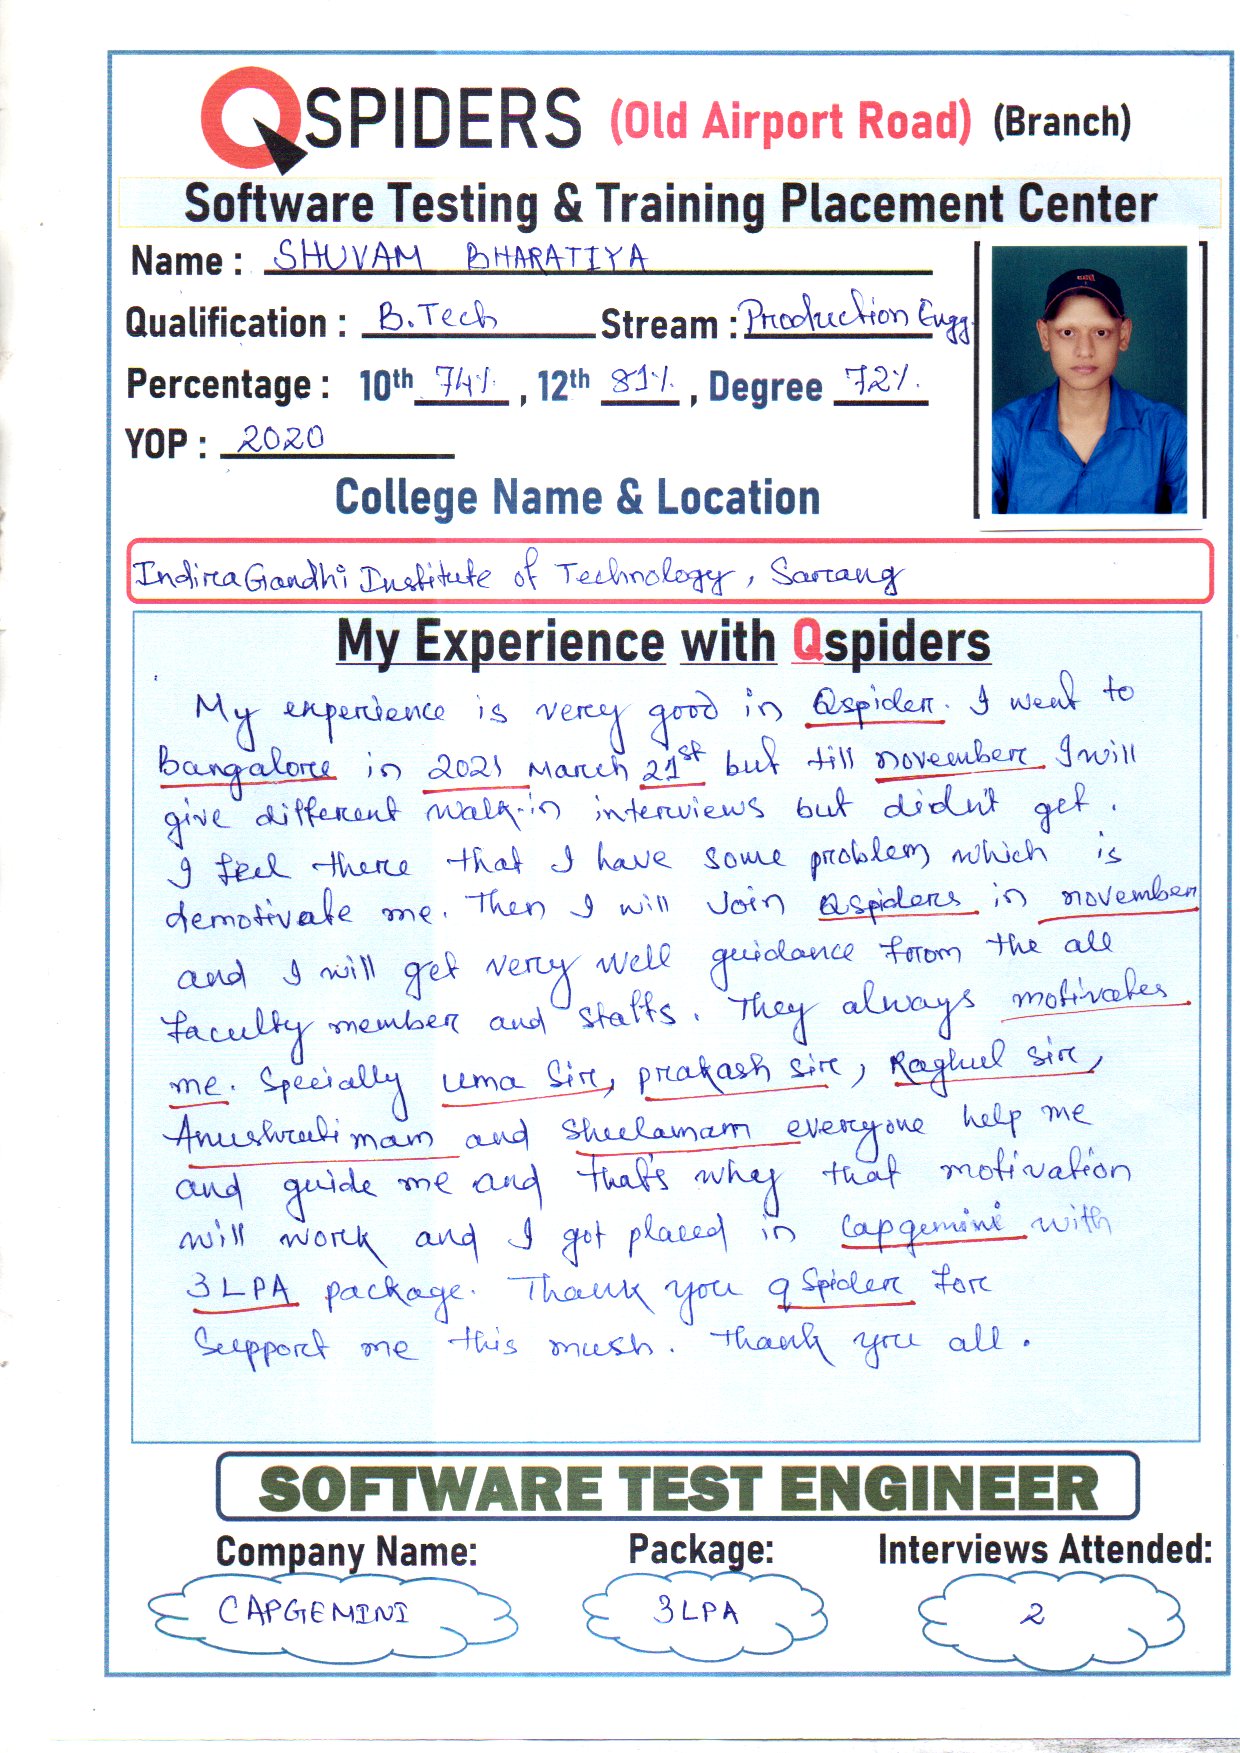 QSPIDERS (Old Airport Road) (Branch)
Software Testing & Training Placement Center
Name : SHUVAM BHARATIYA
Qualification : B.Tech Stream : Production Engg.
Percentage : 10th 74%. , 12th 81%. , Degree 72%.
YOP : 2020
College Name & Location
Indira Gandhi Institute of Technology, Sarang
My Experience with Qspiders
My experience is very good in Qspider. I went to
Bangalore in 2021 March 21st but till november I will
give different walk-in interviews but didn't get.
I feel there that I have some problem which is
demotivate me. Then I will Join Qspiders in november
and I will get very well guidance from the all
faculty member and staffs. They always motivates
me. Specially Uma Sir, prakash sir, Raghul sir,
Anushruti mam and Sheelamam everyone help me
and guide me and that's why that motivation
will work and I got placed in Capgemini with
3LPA package. Thank you qSpider for
Support me this mush. Thank you all.
SOFTWARE TEST ENGINEER
Company Name: Package: Interviews Attended:
CAPGEMINI 3LPA 2